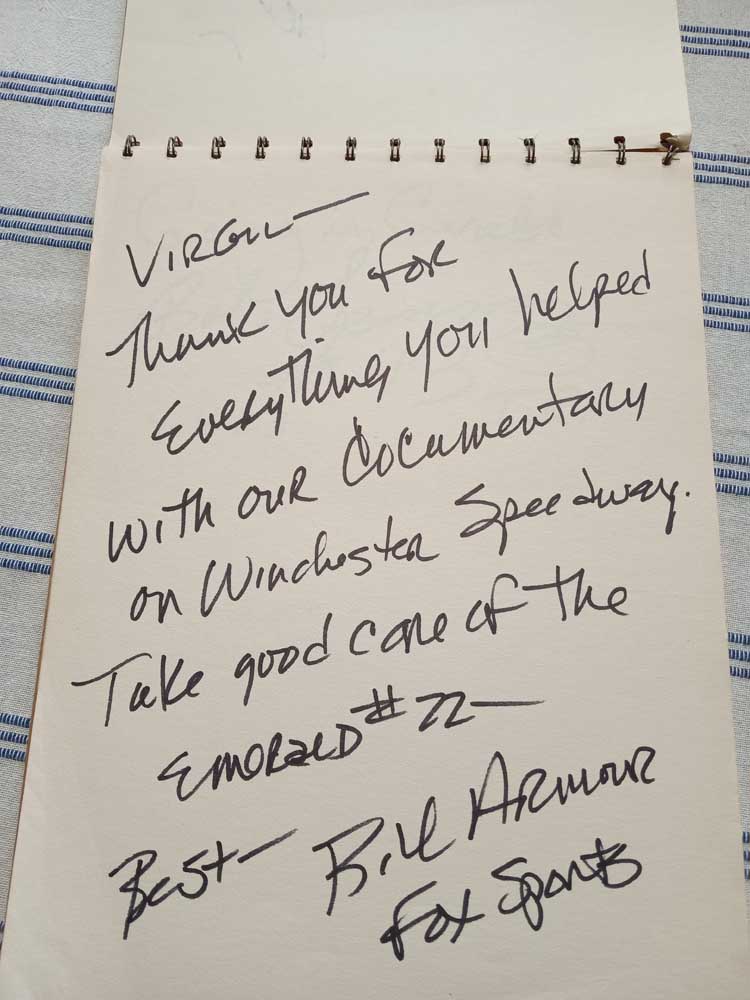 VIRGIL—
Thank you for
Everything you helped
with our documentary
on Winchester Speedway.
Take good care of the
EMERALD #22—
Best— Bill Armour
Fox Sports